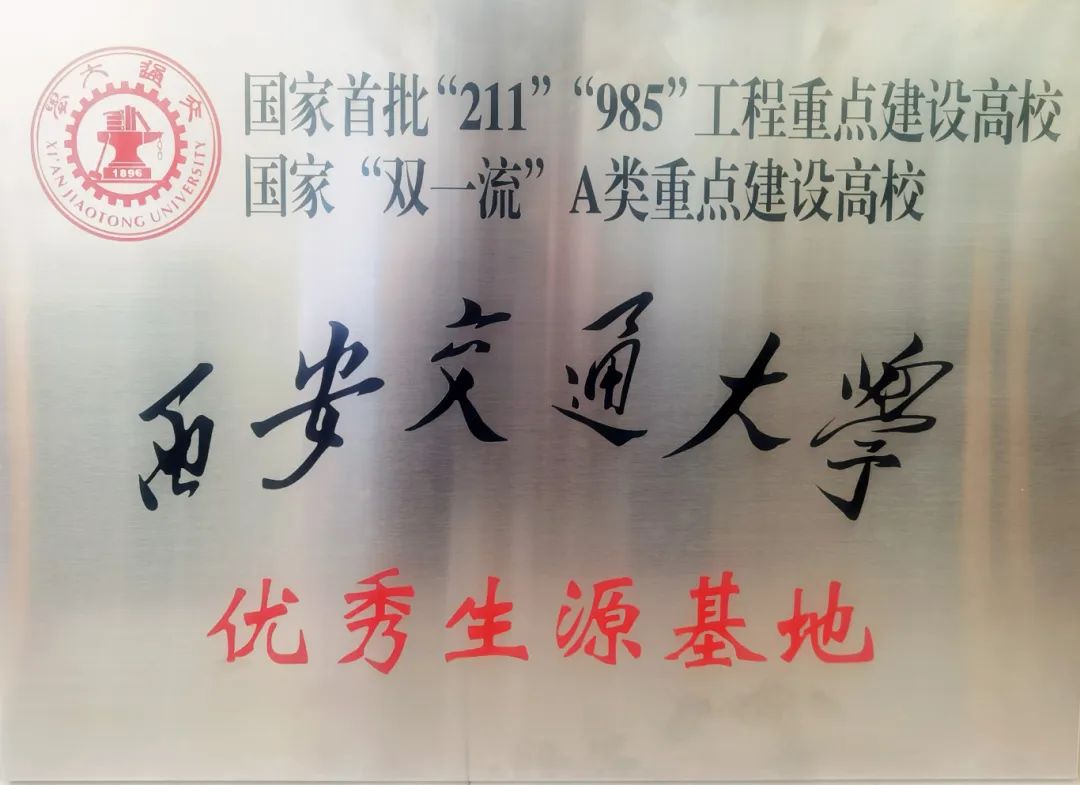 交通大學
XI'AN JIAOTONG UNIVERSITY
1896
国家首批“211”“985”工程重点建设高校
国家“双一流”A类重点建设高校
西安交通大学
优秀生源基地